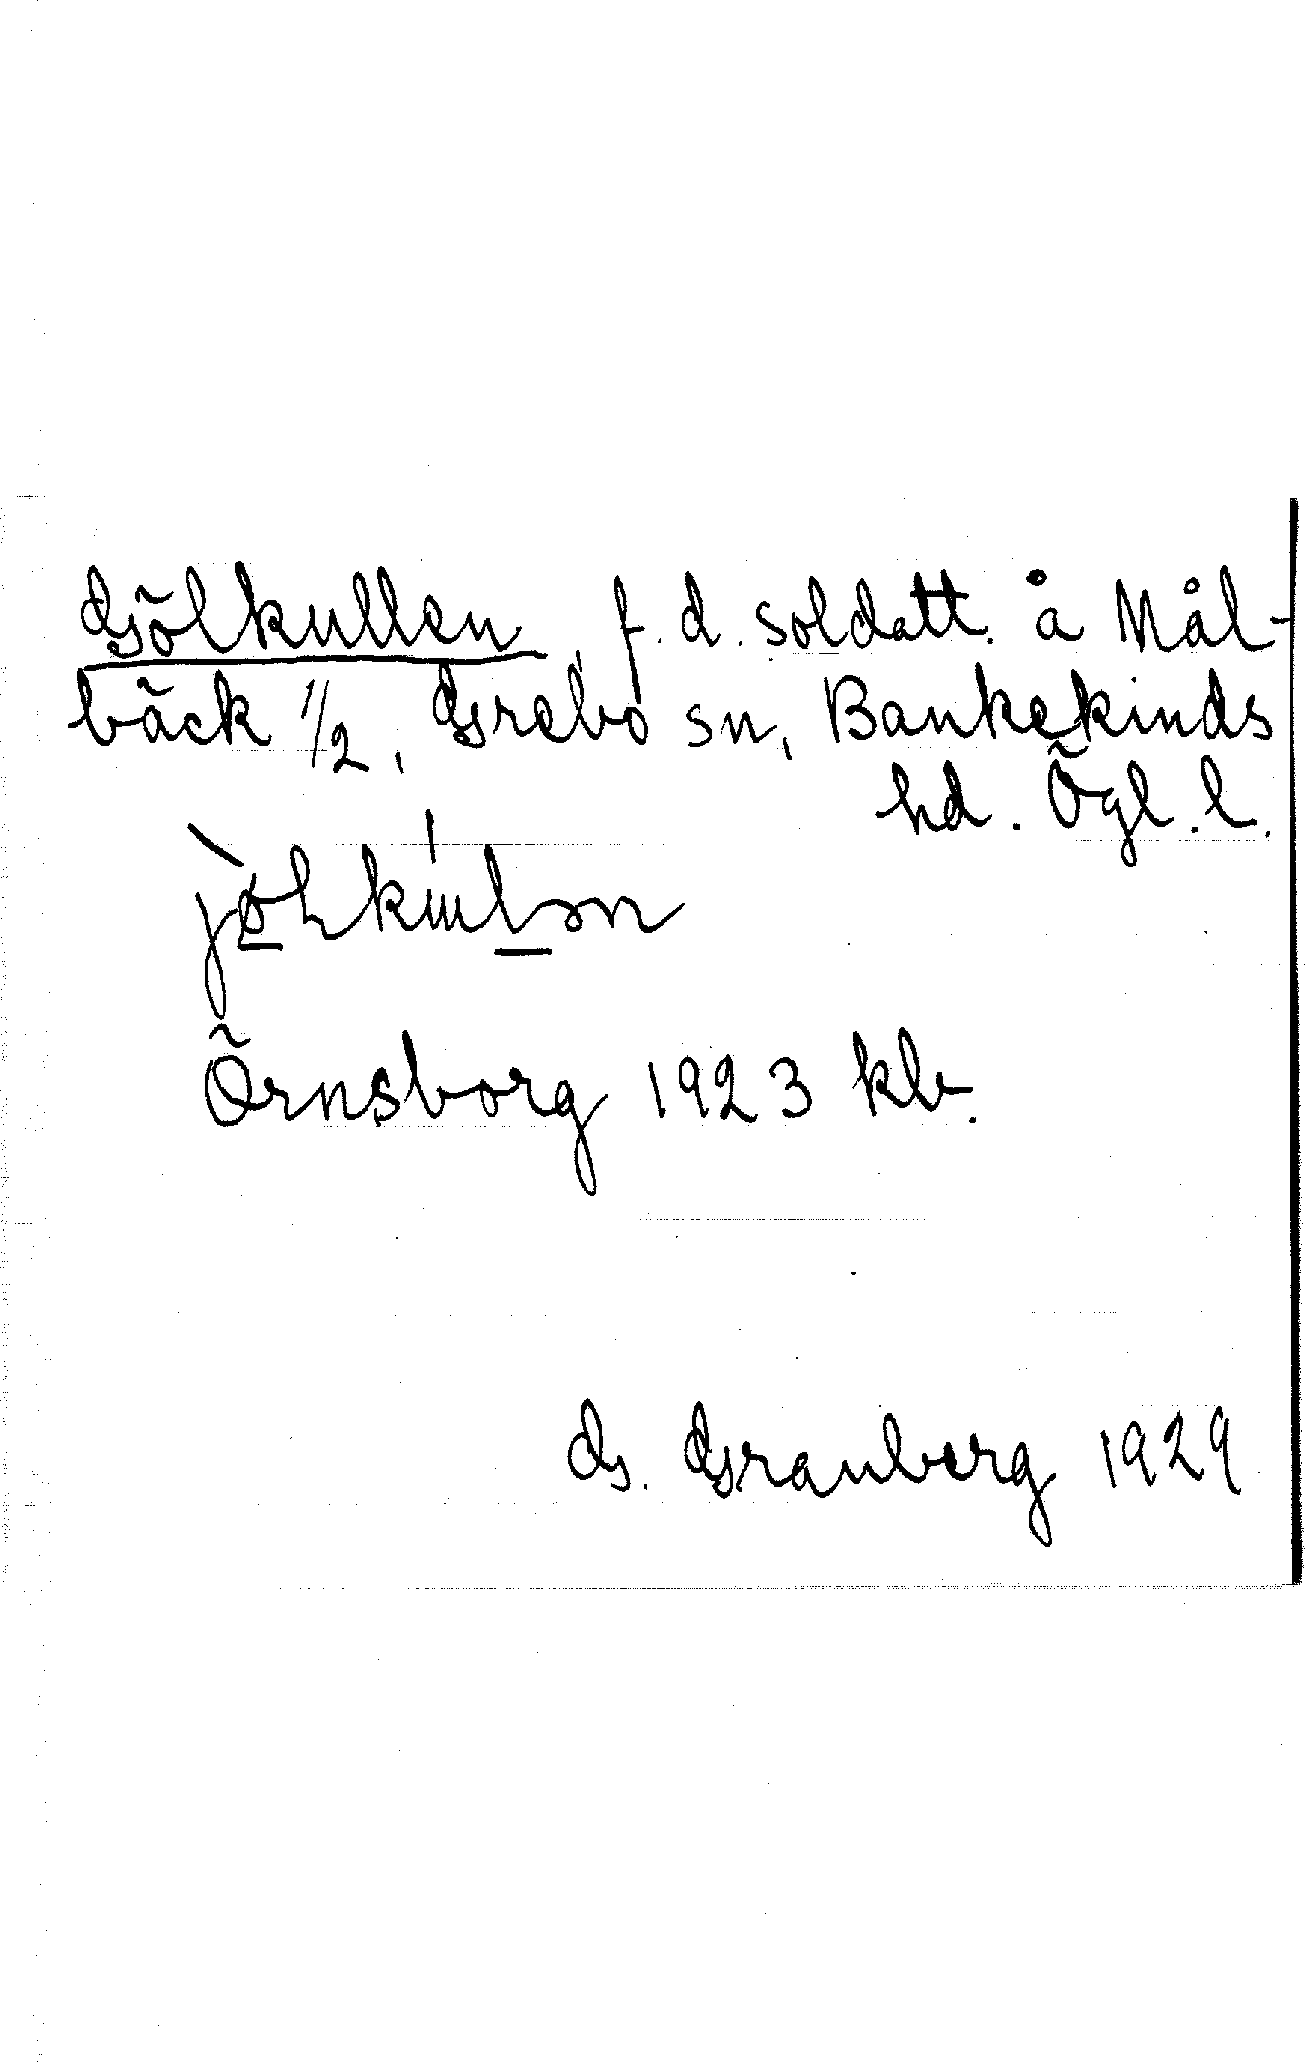 Gölkullen, f. d. soldatt. å Mål-
bäck 1/2, Grebo sn, Bankekinds
hd. Ögl. l.
Örnsborg 1923 kb.
G. Granberg 1929